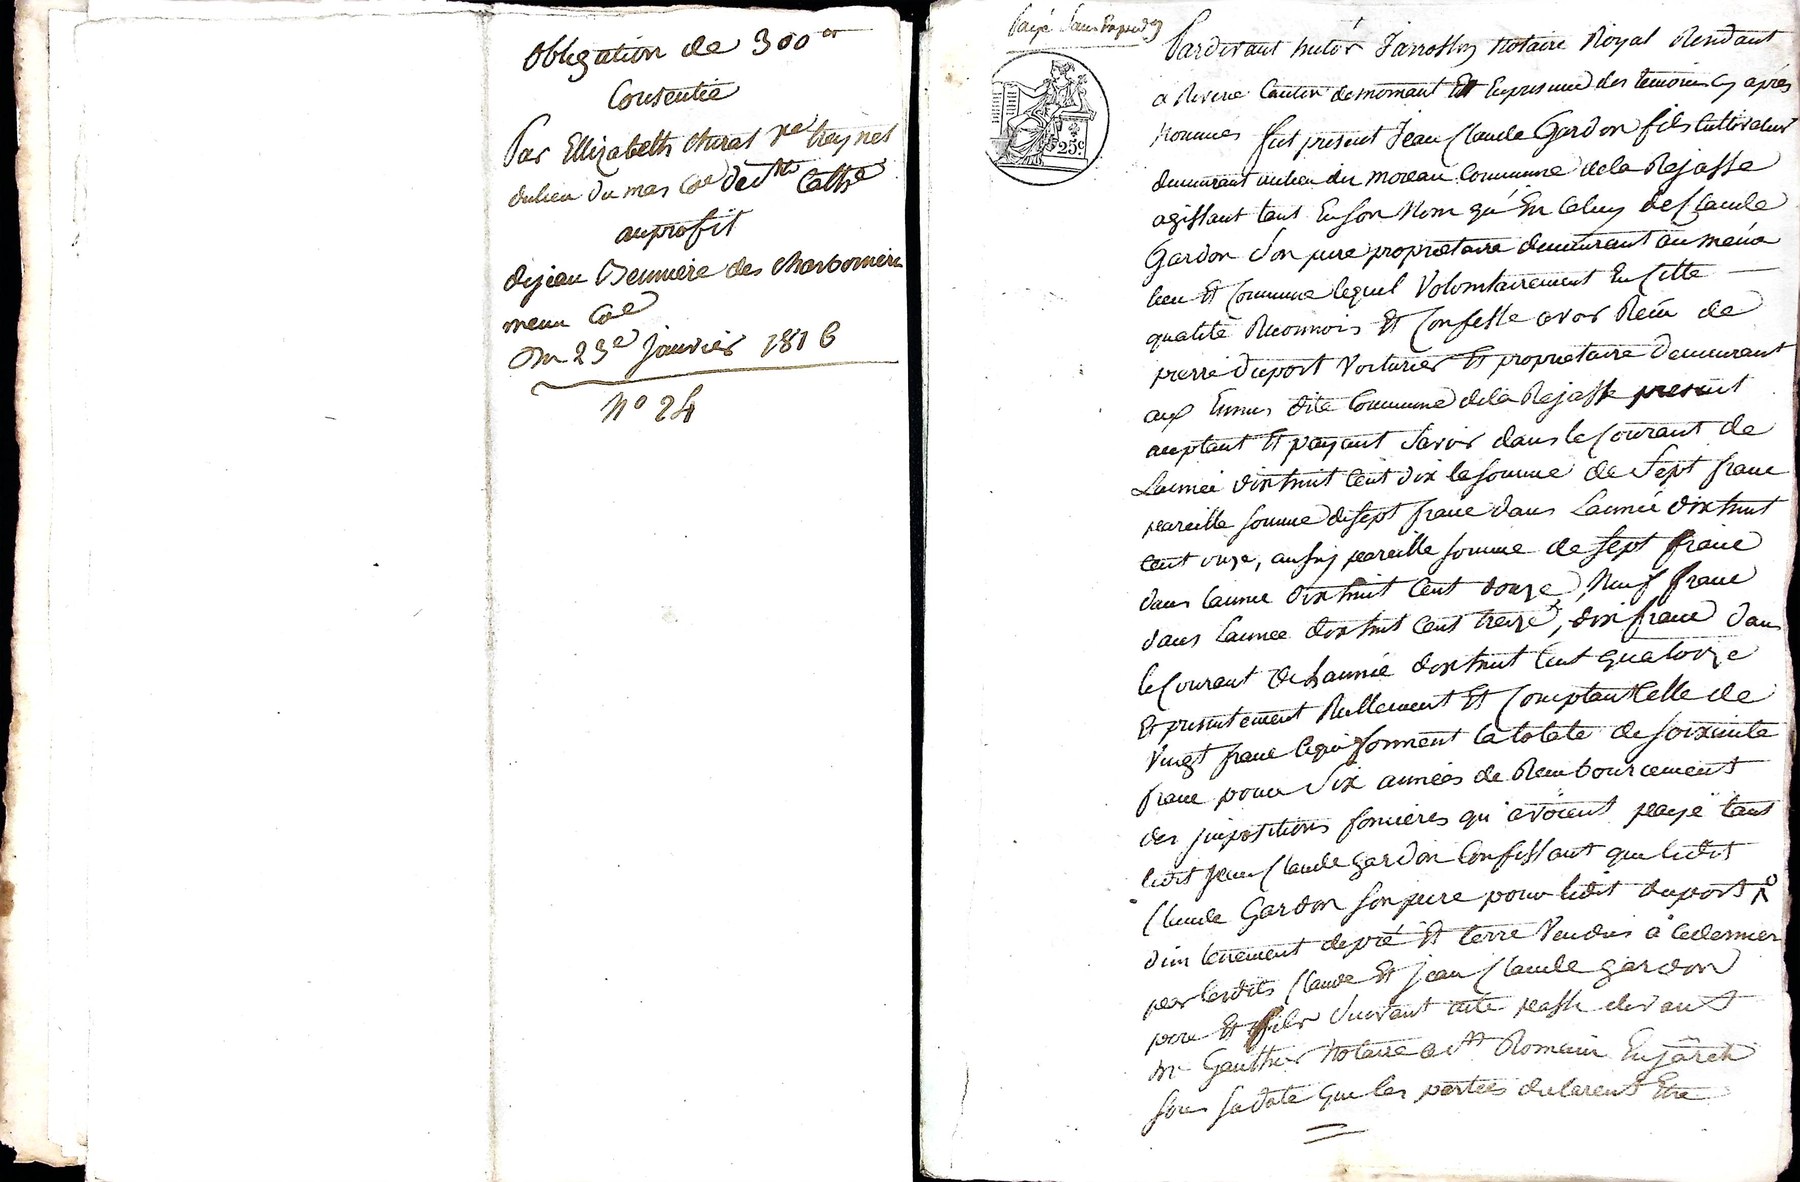 Obligation de 300 cs
Consentie
Par Ellizabeth Murat ve treynet
du lieu du mas Cne de Ste Cathe
au profit
de jean Bennière des charbonnieres
meme Cne
Du 23e janvier 1816
No 24
Payé Sans
Pardevant notér Janrossy notaire Royal Rendant
a Riverie Canton de mornant Et En presence des temoins cy après
nommes fut present Jean Claude Gardon fils cultivateur
demeurant au lieu du moreau Commune de la Rajasse
agissant tant En son Nom qu'En Celuy de Claude
Gardon son pere proprietaire demeurant au même
lieu Et Commune lequel Volontairement En Cette
qualité Reconnois Et Confesse avoir Recu de
pierre duport Voiturier Et proprietaire demeurant
aux dite Commune de la Rajasse present
aceptant Et payant Savoir dans le Courant de
Lannée dixhuit Cent dix la somme de Sept franc
pareille somme de sept franc dans Lannée dixhuit
Cent onze, aussy pareille somme de sept franc
dans lannee dixhuit Cent douze, Neuf franc
dans Lannee dixhuit Cent treize, dix franc dans
le Courant de Lannée dixhuit Cent quatorze
Et presentement Rellement Et Comptant Celle de
Vingt franc Ce qui forment la totale de soixante
franc pour Six années de Remboursement
des jmpositions foncieres qu'avoient payé tant
ledit Jean Claude Gardon Confessant que ledit
Claude Gardon son pere pour ledit duport
d'un tenement de pré Et terre Vendus a Ce dernier
par lesdits Claude Et jean Claude gardon
pere Et fils Suivant acte passé devant
Me Gauthier Notaire a St Romain En jarêt
sous sa date que les parties declarent Etre